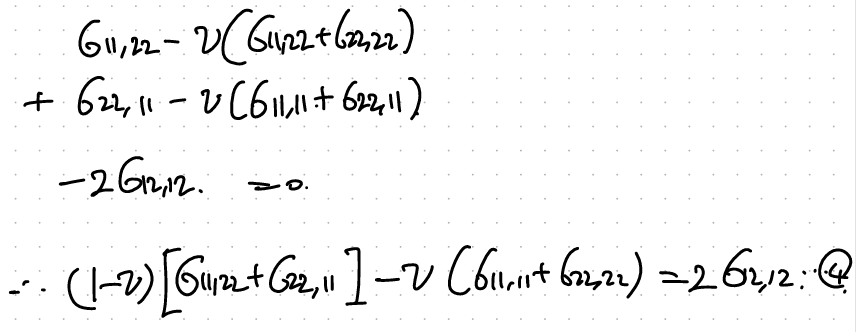 σ11,22 - ν(σ11,22 + σ22,22)
+ σ22,11 - ν(σ11,11 + σ22,11)
-2σ12,12. = 0.
∴ (1-ν)[σ11,22 + σ22,11] - ν(σ11,11 + σ22,22) = 2σ12,12 : ④